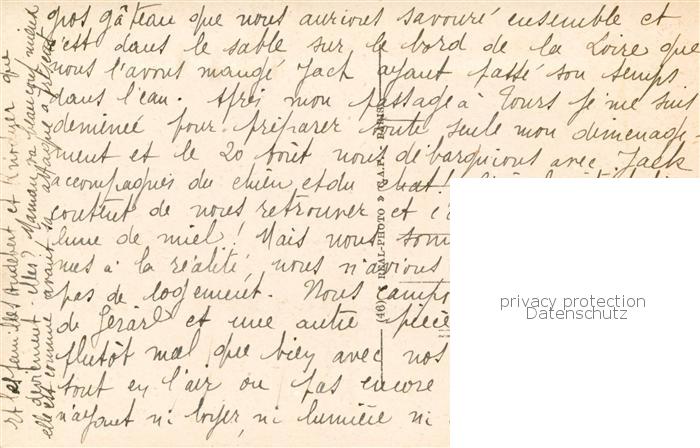 gros gâteau que nous aurions savouré ensemble et
c'est dans le sable sur le bord de la Loire que
nous l'avons mangé Jack ayant passé son temps
dans l'eau. Après mon passage à Tours je me suis
deminée pour préparer toute seule mon déménage-
ment et le 20 Août nous débarquions avec Jack
accompagnés du chien et du chat!
content de nous retrouver et
lune de miel! Mais nous som
mes à la réalité, nous n'avions
pas de logement. Nous camp
de Gérard et une autre pièce
plutôt mal que bien avec nos
tout en l'air ou pas encore
n'ayant ni loyer, ni lumière ni
Et les familles Audebert et que
deviennent-elles? Maman va mieux
elle est comme avant sa attaque
(46) REAL-PHOTO » C.A.P. PARIS
privacy protection
Datenschutz